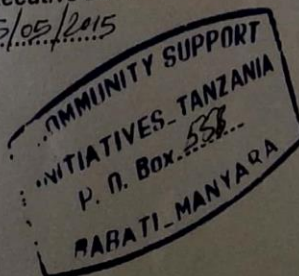 5/05/2015
OMMUNITY SUPPORT
NITIATIVES-TANZANIA
P. O. Box. 558
BABATI-MANYARA